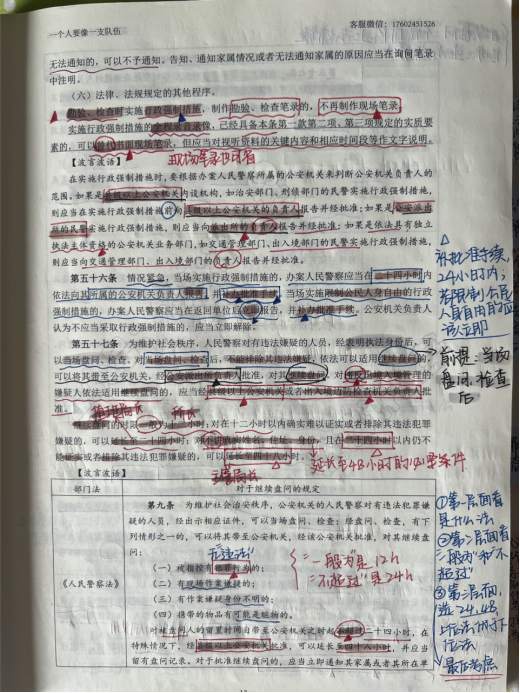 一个人要像一支队伍
客服微信：17602451526
无法通知的，可以不予通知。告知、通知家属情况或者无法通知家属的原因应当在询问笔录
中注明。
（六）法律、法规规定的其他程序。
勘验、检查时实施行政强制措施，制作勘验、检查笔录的，不再制作现场笔录。
实施行政强制措施的全程录音录像，已经具备本条第一款第二项、第三项规定的实质要
素的，可以替代书面现场笔录，但应当对视听资料的关键内容和相应时间段等作文字说明。
【波言波语】
在实施行政强制措施时，要根据办案人民警察所属的公安机关来判断公安机关负责人的
范围。如果是县级以上公安机关内设机构，如治安部门、刑侦部门的民警实施行政强制措施，
则应当在实施行政强制措施前向县级以上公安机关的负责人报告并经批准；如果是公安派出
所的民警实施行政强制措施，则应当向派出所的负责人报告并经批准；如果是依法具有独立
执法主体资格的公安机关业务部门，如交通管理部门、出入境部门的民警实施行政强制措施，
则应当向交通管理部门、出入境部门的负责人报告并经批准。
第五十六条 情况紧急，当场实施行政强制措施的，办案人民警察应当在二十四小时内
依法向其所属的公安机关负责人报告，并补办批准手续。当场实施限制公民人身自由的行政
强制措施的，办案人民警察应当在返回单位后立即报告，并补办批准手续。公安机关负责人
认为不应当采取行政强制措施的，应当立即解除。
补批准手续，
24小时内，
若限制公民
人身自由的应
该立即
第五十七条 为维护社会治安秩序，人民警察对有违法嫌疑的人员，经表明执法身份后，可
以当场盘问、检查。对当场盘问、检查后，不能排除其违法嫌疑，依法可以适用继续盘问的，
可以将其带至公安机关，经公安派出所负责人批准，对其继续盘问。对违反出境入境管理的
嫌疑人依法适用继续盘问的，应当经县级以上公安机关或者出入境边防检查机关负责人批
准。
前提：当场
盘问、检查
后
继续盘问的时限一般为十二小时；对在十二小时以内确实难以证实或者排除其违法犯罪
嫌疑的，可以延长至二十四小时；对不讲真实姓名、住址、身份，且在二十四小时以内仍不
能证实或者排除其违法犯罪嫌疑的，可以延长至四十八小时。
延长至48小时的必要条件
【波言波语】
部门法
对于继续盘问的规定
《人民警察法》
第九条 为维护社会治安秩序，公安机关的人民警察对有违法犯罪嫌
疑的人员，经出示相应证件，可以当场盘问、检查；经盘问、检查，有下
列情形之一的，可以将其带至公安机关，经该公安机关批准，对其继续盘
问：
（一）被指控有犯罪行为的；
（二）有现场作案嫌疑的；
（三）有作案嫌疑身份不明的；
（四）携带的物品有可能是赃物的。
对被盘问人的留置时间自带至公安机关之时起不超过二十四小时，在
特殊情况下，经县级以上公安机关批准，可以延长至四十八小时，并应当
留有盘问记录。对于批准继续盘问的，应当立即通知其家属或者其所在单
"一般为"是12h
"不超过"是24h
①第一层面看
是什么法
②第二层面看
"一般为"和"不
超过"
③第三层面，